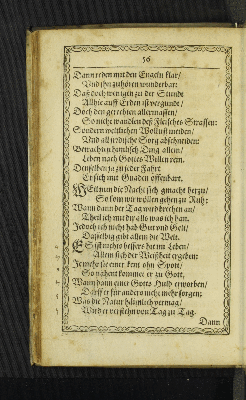 56
Dann reden mit den Engeln klar/
Und ihn zuhören wunderbar:
Daß doch wenigen zu der Stundt
Allhie auff Erden ist vergundt/
Doch den gerechten allermaisten/
So nicht wandlen deß Fleisches Strassen:
Sondern weltlichen Wollust meiden/
Und all irrdische Sorg abschneiden:
Betracht himmlisch Ding allein/
Leben nach Gottes Willen rein.
Denselben ja zu jeder Fahrt
Er sich mit Gnaden offenbart.
Weil nun die Nacht sich gmacht herzu/
So kom wir wöllen gehen zu Ruh:
Wann dann der Tag wird brechen an/
Theil ich mit dir alls was ich han.
Jedoch ich nicht hab Gut und Gelt/
Dasselbig gibt allein die Welt.
Es ist nichts bessers hat im Leben/
Allein sich der Weißheit ergeben:
Je mehr sie einer kent ohn Spott/
So nähent kommet er zu Gott,
Wann dann einer Gottes Huld erworben/
Darff er für anders nicht mehr sorgen;
Was die Natur haimlich vermag/
Wird er verstehn von Tag zu Tag.
Dann